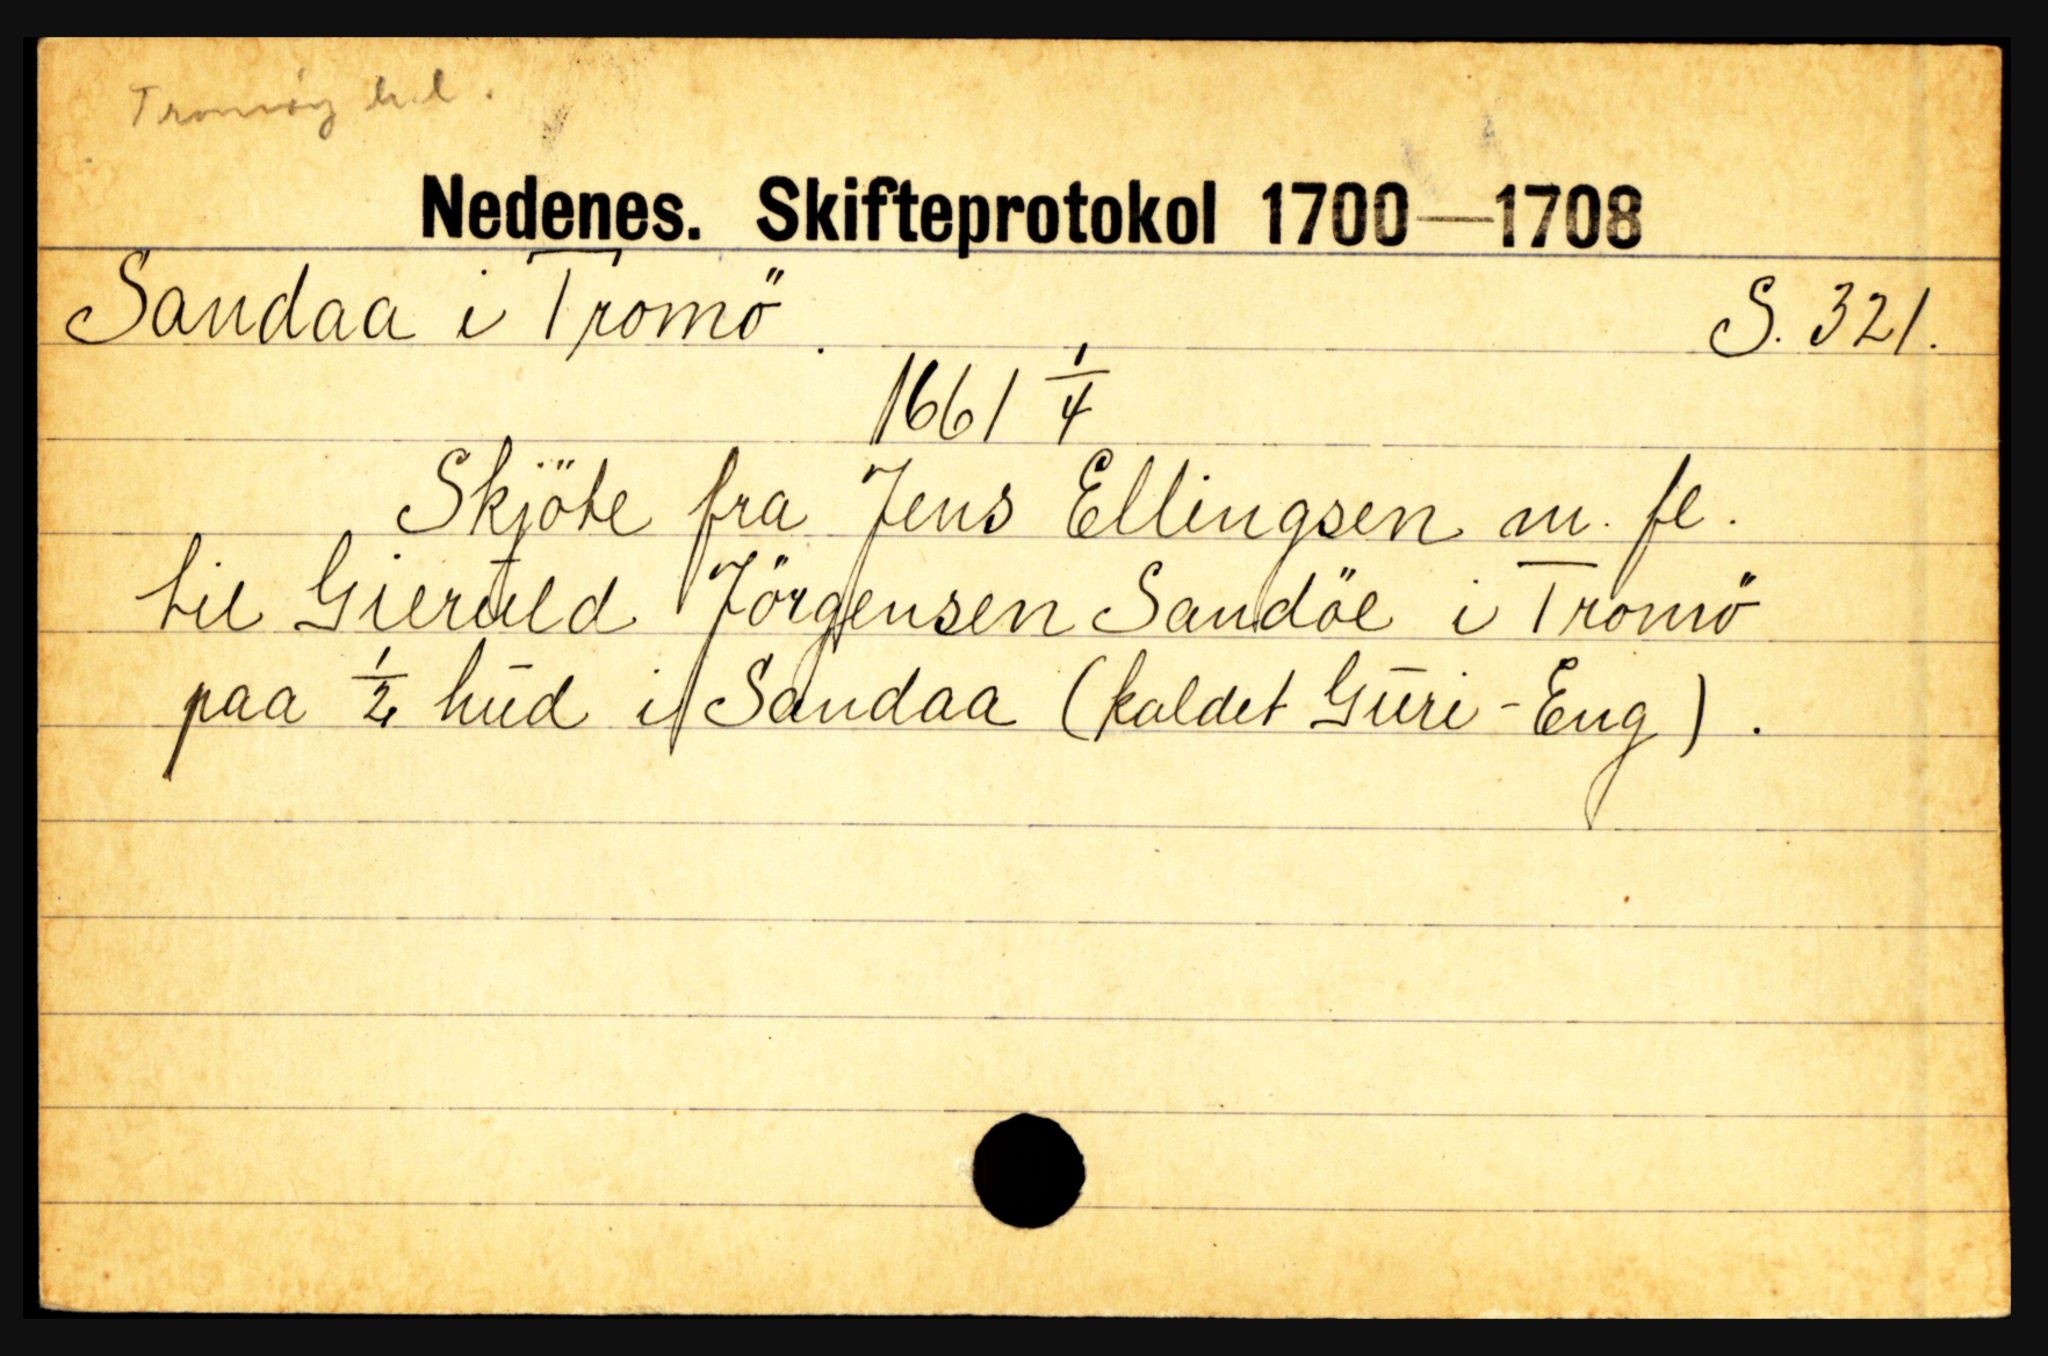 Tromøy hd.
Nedenes. Skifteprotokol 1700—1708
Sandaa i Tromö. S. 321.
1661 1/4
Skjöte fra Jens Ellingsen m. fl.
til Gieruld Jörgensen Sandöe i Tromö
paa 1/2 hud i Sandaa (kaldet Guri-Eng).